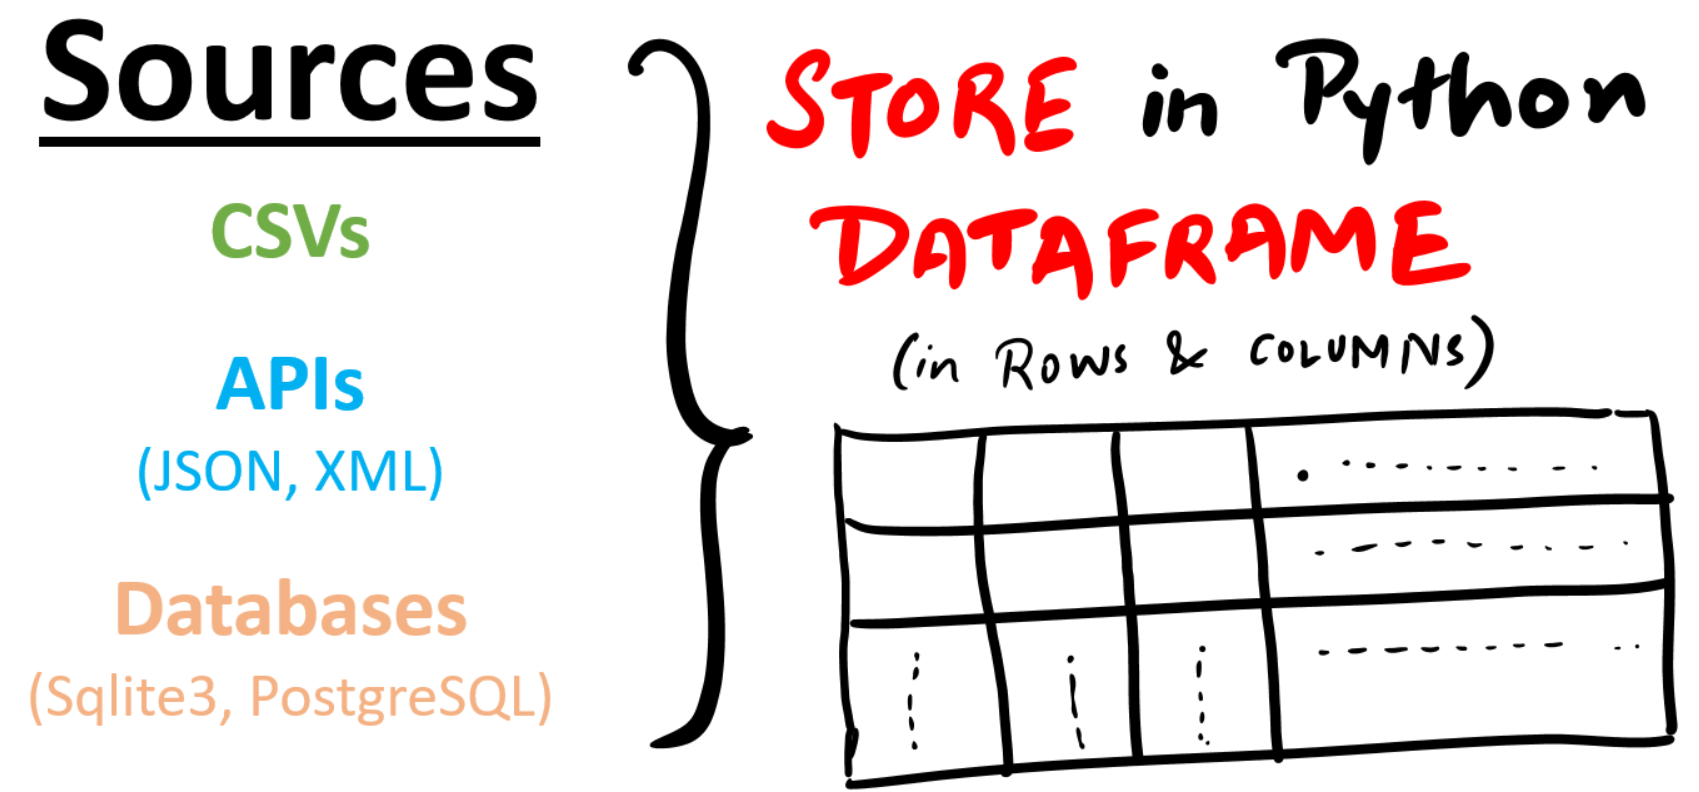 Sources
CSVs
APIs
(JSON, XML)
Databases
(Sqlite3, PostgreSQL)
STORE in Python
DATAFRAME
(in ROWS & COLUMNS)